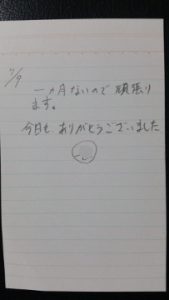 7/9
一ヵ月ないので頑張り
ます。
今日も、ありがとうございました